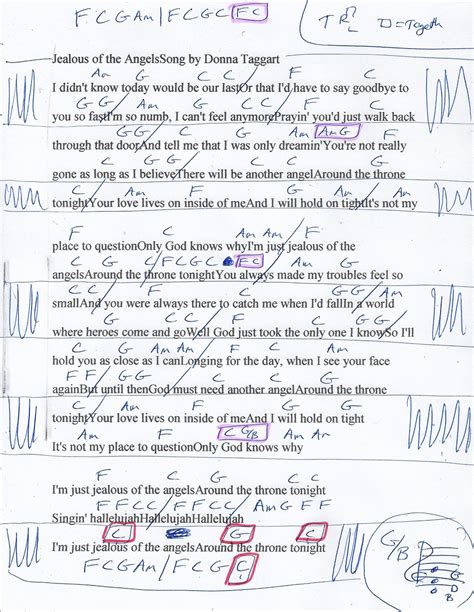 F C G Am / F C G C F C
T D = Togeth
Jealous of the AngelsSong by Donna Taggart
Am G C C F C
I didn't know today would be our lastOr that I'd have to say goodbye to
G G Am G F C
you so fastI'm so numb, I can't feel anymorePrayin' you'd just walk back
G G C G Am Am G
through that doorAnd tell me that I was only dreamin'You're not really
F C G G C G
gone as long as I believeThere will be another angelAround the throne
Am F C G
tonightYour love lives on inside of meAnd I will hold on tightIt's not my
F C Am Am F
place to questionOnly God knows whyI'm just jealous of the
C G C / F C G C F C
angelsAround the throne tonightYou always made my troubles feel so
smallAnd you were always there to catch me when I'd fallIn a world
where heroes come and goWell God just took the only one I knowSo I'll
C G Am F C
hold you as close as I canLonging for the day, when I see your face
F F G G C G
againBut until thenGod must need another angelAround the throne
C Am F C G
tonightYour love lives on inside of meAnd I will hold on tight
Am F C G/B Am
It's not my place to questionOnly God knows why
F C G
I'm just jealous of the angelsAround the throne tonight
F F C C F F C C Am G F F
Singin' hallelujahHallelujahHallelujah
C G C
I'm just jealous of the angelsAround the throne tonight
F C G Am / F C G C
G/B
G
D
B